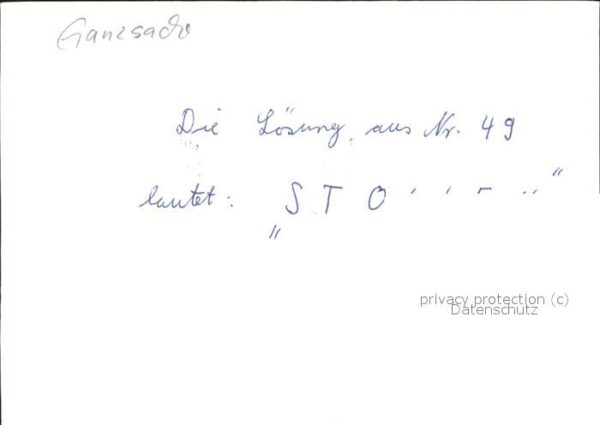 Ganzsache
Die Lösung aus Nr. 49
lautet: „STO
privacy protection (c)
Datenschutz